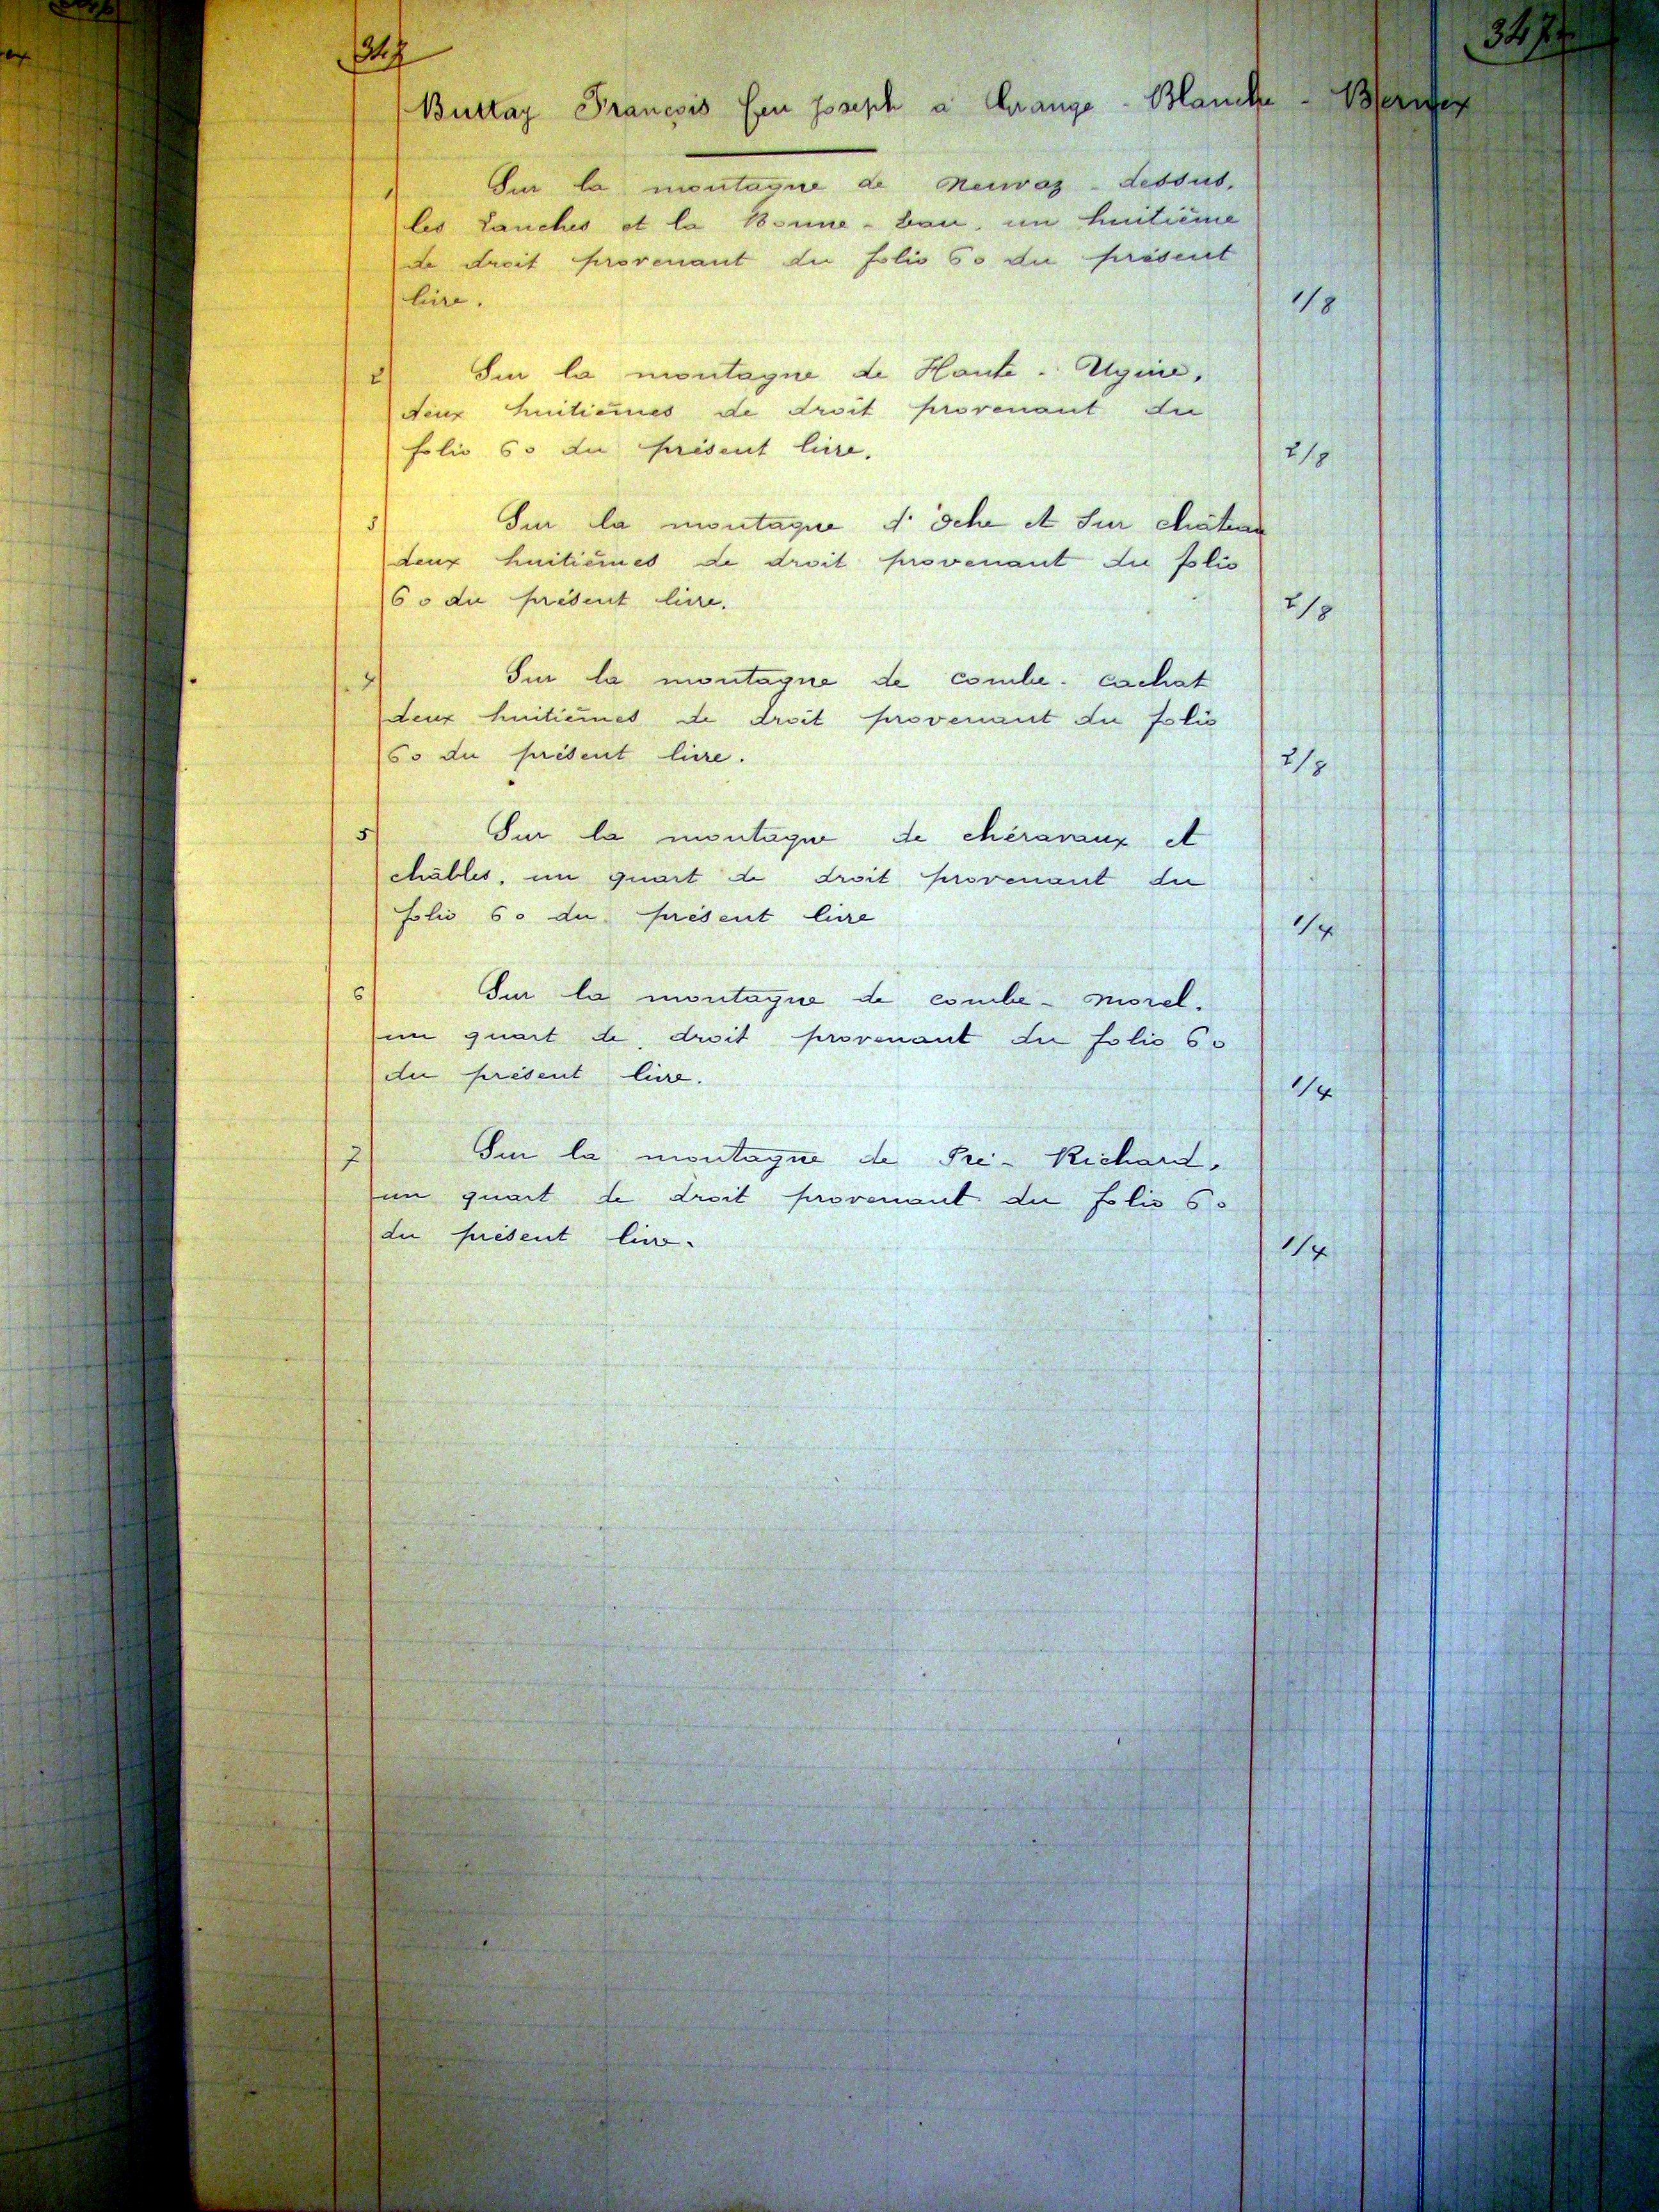 347
347
Buttay François feu Joseph à Grange - Blanche - Bernex
1 Sur la montagne de Neuvaz - dessus,
les Lanches et la Bonne - Eau, un huitième
de droit provenant du folio 60 du présent
livre. 1/8
2 Sur la montagne de Haute - Ugine,
deux huitièmes de droit provenant du
folio 60 du présent livre. 2/8
3 Sur la montagne d'Oche et Sur château
deux huitièmes de droit provenant du folio
60 du présent livre. 2/8
4 Sur la montagne de combe - cachat
deux huitièmes de droit provenant du folio
60 du présent livre. 2/8
5 Sur la montagne de chéravaux et
châbles, un quart de droit provenant du
folio 60 du présent livre 1/4
6 Sur la montagne de combe - morel.
un quart de droit provenant du folio 60
du présent livre. 1/4
7 Sur la montagne de Pré - Richard,
un quart de droit provenant du folio 60
du présent livre. 1/4